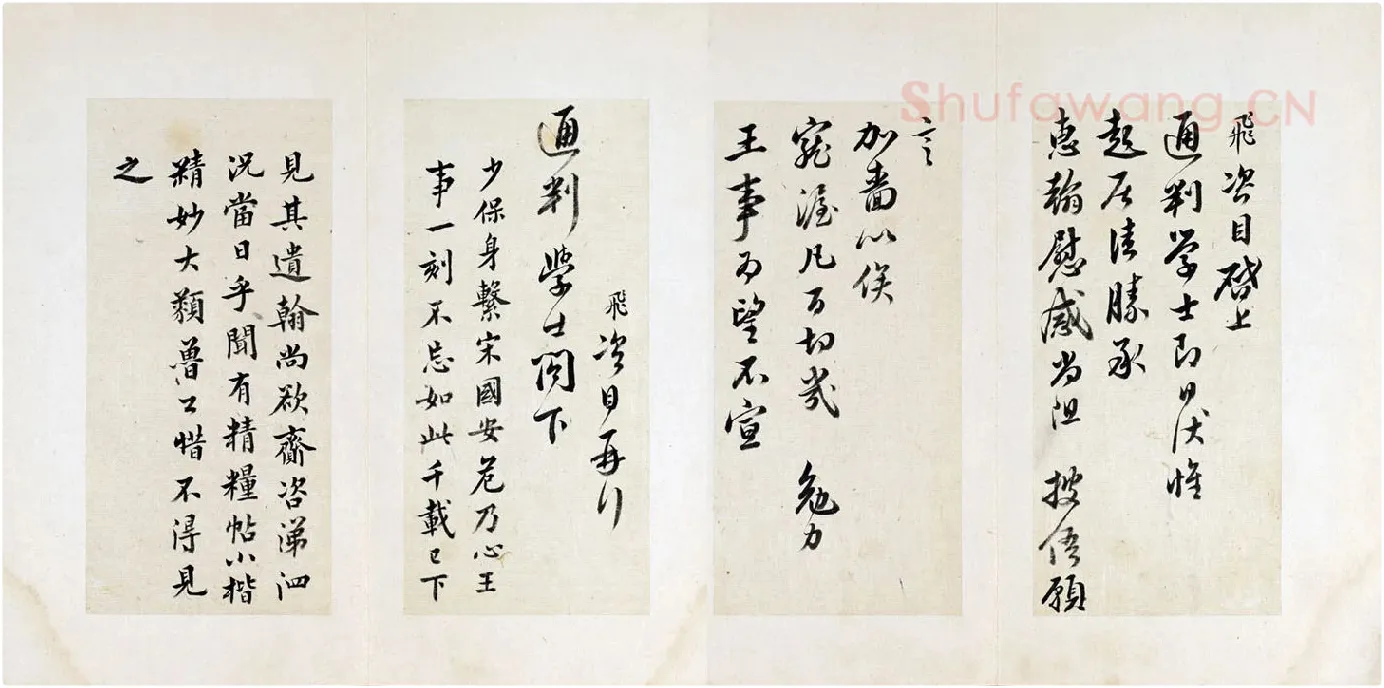 Shufawang.CN
飛咨目啓上
通判学士即日伏惟
起居清勝承
惠翰慰感尚阻 披悟願
言
加嗇以俟
寵渥凡百切幾 勉力
王事而望不宣
飛咨目再拜
通判學士閤下
少保身繫宋國安危乃心王
事一刻不忘如此千載已下
見其遺翰尚欲齎咨涕泗
況當日乎聞有精糧帖小楷
精妙大類魯公惜不得見
之